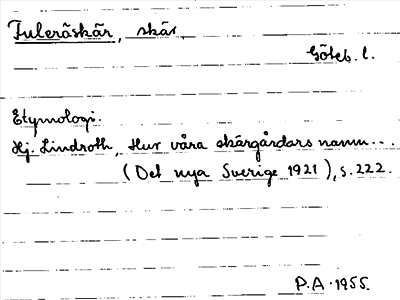 Fuleräskär, skär,
Göteb. l.
Etymologi.
Hj. Lindroth, Hur våra skärgårdars namn...
(Det nya Sverige 1921), s. 222.
P.A. 1955.